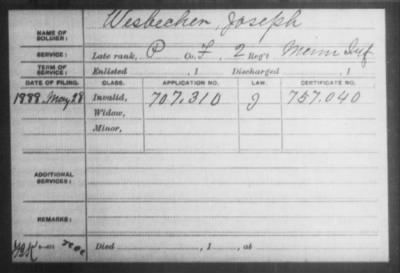 Wesbecher, Joseph
NAME OF SOLDIER:
SERVICE: Late rank, P Co. F, 2 Reg't Minn Inf
TERM OF SERVICE: Enlisted , 1 Discharged , 1
DATE OF FILING. CLASS. APPLICATION NO. LAW. CERTIFICATE NO.
1889 May 28 Invalid, 707.310 J 757.040
Widow,
Minor,
ADDITIONAL SERVICES:
REMARKS:
Died , 1 , at